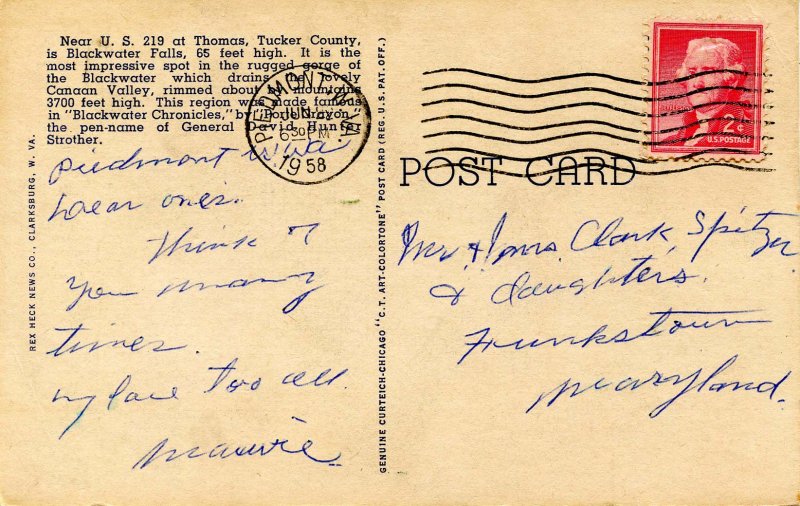 Near U. S. 219 at Thomas, Tucker County,
is Blackwater Falls, 65 feet high. It is the
most impressive spot in the rugged gorge of
the Blackwater which drains the lovely
Canaan Valley, rimmed about by mountains
3700 feet high. This region was made famous
in "Blackwater Chronicles," by "Porte Crayon,"
the pen-name of General David Hunter
Strother.
PIEDMONT W.VA.
JUN
630 PM
1958
Piedmont W Va
Dear ones.
Think of
you many
times.
my love too all.
REX HECK NEWS CO., CLARKSBURG, W. VA.
GENUINE CURTEICH-CHICAGO "C.T. ART-COLORTONE" POST CARD (REG. U.S. PAT. OFF.)
2¢
U.S. POSTAGE
POST CARD
Mr & Mrs Clark Spitzer
& daughters.
Funkstown
Maryland.